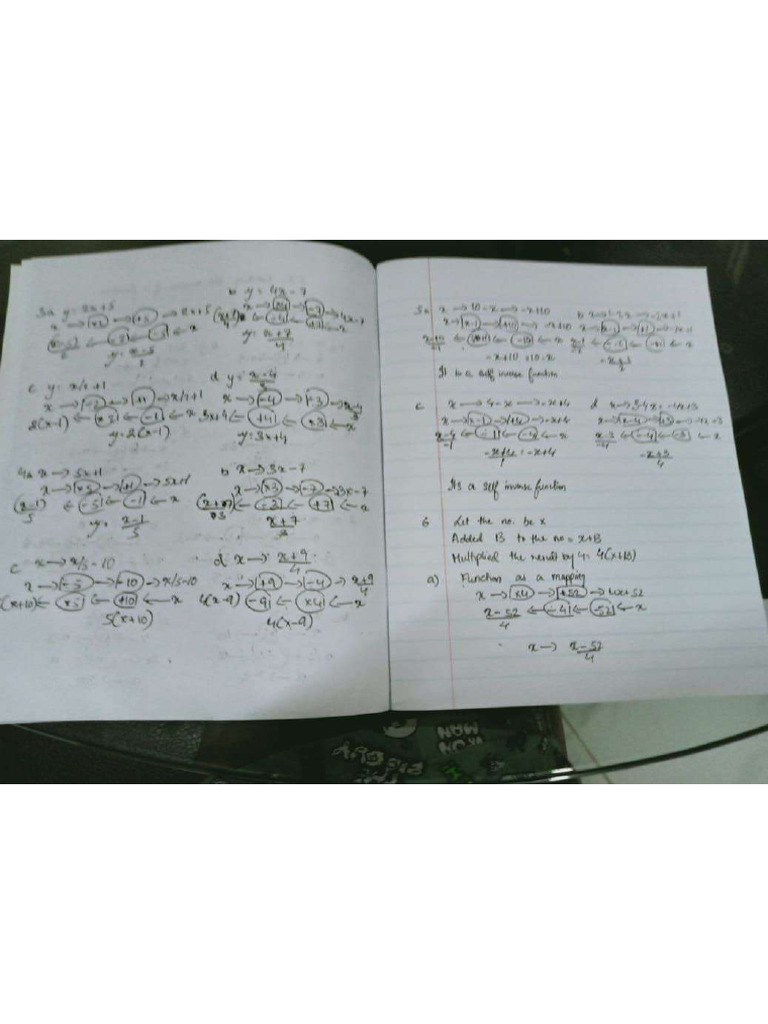 3a y = 2x+5
x → ×2 → +5 → 2x+5
x-5/2 ← ÷2 ← -5 ← x
y = x-5/2
b y = 4x-7
x → ×4 → -7 → 4x-7
(x+7)/4 ← ÷4 ← +7 ← x
y = x+7/4
c y = x/2+1
x → ÷2 → +1 → x/2+1
2(x-1) ← ×2 ← -1 ← x
y = 2(x-1)
d y = x-4/3
x → -4 → ÷3 → x-4/3
3x+4 ← +4 ← ×3 ← x
y = 3x+4
4a x → 5x+1
x → ×5 → +1 → 5x+1
(x-1)/5 ← ÷5 ← -1 ← x
y = x-1/5
b x → 3x-7
x → ×3 → -7 → 3x-7
(x+7)/3 ← ÷3 ← +7 ← x
x+7/3
c x → x/5-10
x → ÷5 → -10 → x/5-10
5(x+10) ← ×5 ← +10 ← x
5(x+10)
d x → x+9/4
x → +9 → ÷4 → x+9/4
4(x-9) ← -9 ← ×4 ← x
4(x-9)
5a x → 10-x → -x+10
x → ×-1 → +10 → -x+10
-x+10 = 10-x
It is a self inverse function
c x → 4-x → -x+4
x → ×-1 → +4 → -x+4
x-4/-1 ← ÷-1 ← -4 ← x
-x+4 = -x+4
Its a self inverse function
d
x-3/-4 ← ÷-4 ← -3 ← x
-x+3/4
6 Let the no. be x
Added 13 to the no = x+13
Multiplied the result by 4 = 4(x+13)
a) Function as a mapping
x → ×4 → +52 → 4x+52
x-52/4 ← ÷4 ← -52 ← x
x → x-52/4